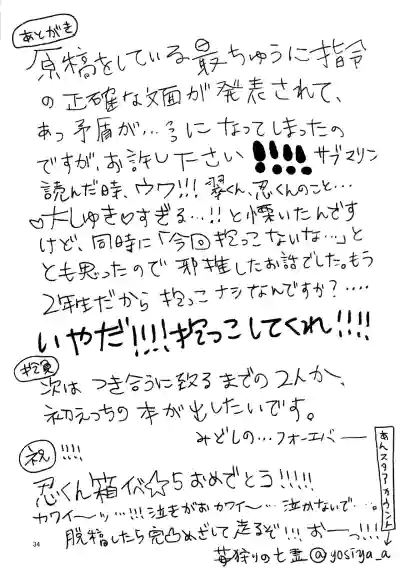 あとがき
原稿をしている最ちゅうに指令
の正確な文面が発表されて、
あっ矛盾が…うになってしまったの
ですが、お許し下さい!!!! サブマリン
読んだ時、ウワ!!! 翠くん、忍くんのこと…
♡大しゅき♡すぎる…!! と慄いたんです
けど、同時に「今回抱っこないな…」と
とも思ったので邪推したお話でした。もう
2年生だから抱っこナシなんですか?‥‥
いやだ!!!!抱っこしてくれ!!!!
抱負
次は つき合うに致るまでの2人か、
初えっちの本が出したいです。
みどしの…フォーエバー
祝 !!!!
忍くん箱イベ☆5おめでとう!!!!!
カワイ〜ッ…!!! 泣きがおカワイ〜… 泣かないで…。
脱稿したら完凸めざして走るぞ!!! おーっ!!!
あんスタアカウント→
苺狩りの七霊@yosiya_a
34